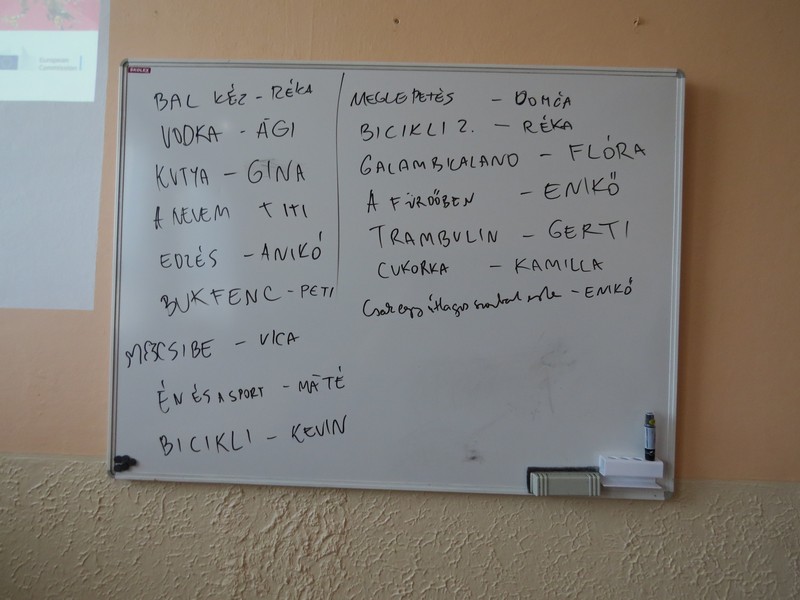 European
Commission
BAL KÉZ - RÉKA
VODKA - ÁGI
KUTYA - GINA
A NEVEM TITI
EDZÉS - ANIKÓ
BUKFENC - PETI
MÉZCSIBE - VICA
ÉN ÉS A SPORT - MÁTÉ
BICIKLI - KEVIN
MEGLEPETÉS - DOMČA
BICIKLI 2. - RÉKA
GALAMBKALAND - FLÓRA
A FÜRDŐBEN - ENIKŐ
TRAMBULIN - GERTI
CUKORKA - KAMILLA
Csak egy átlagos szombat este - ENIKŐ